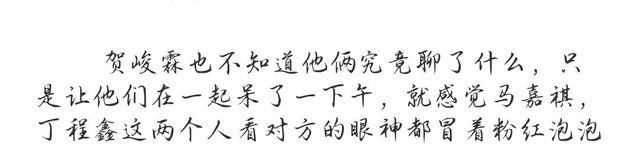 贺峻霖也不知道他俩究竟聊了什么，只
是让他们在一起呆了一下午，就感觉马嘉祺，
丁程鑫这两个人看对方的眼神都冒着粉红泡泡